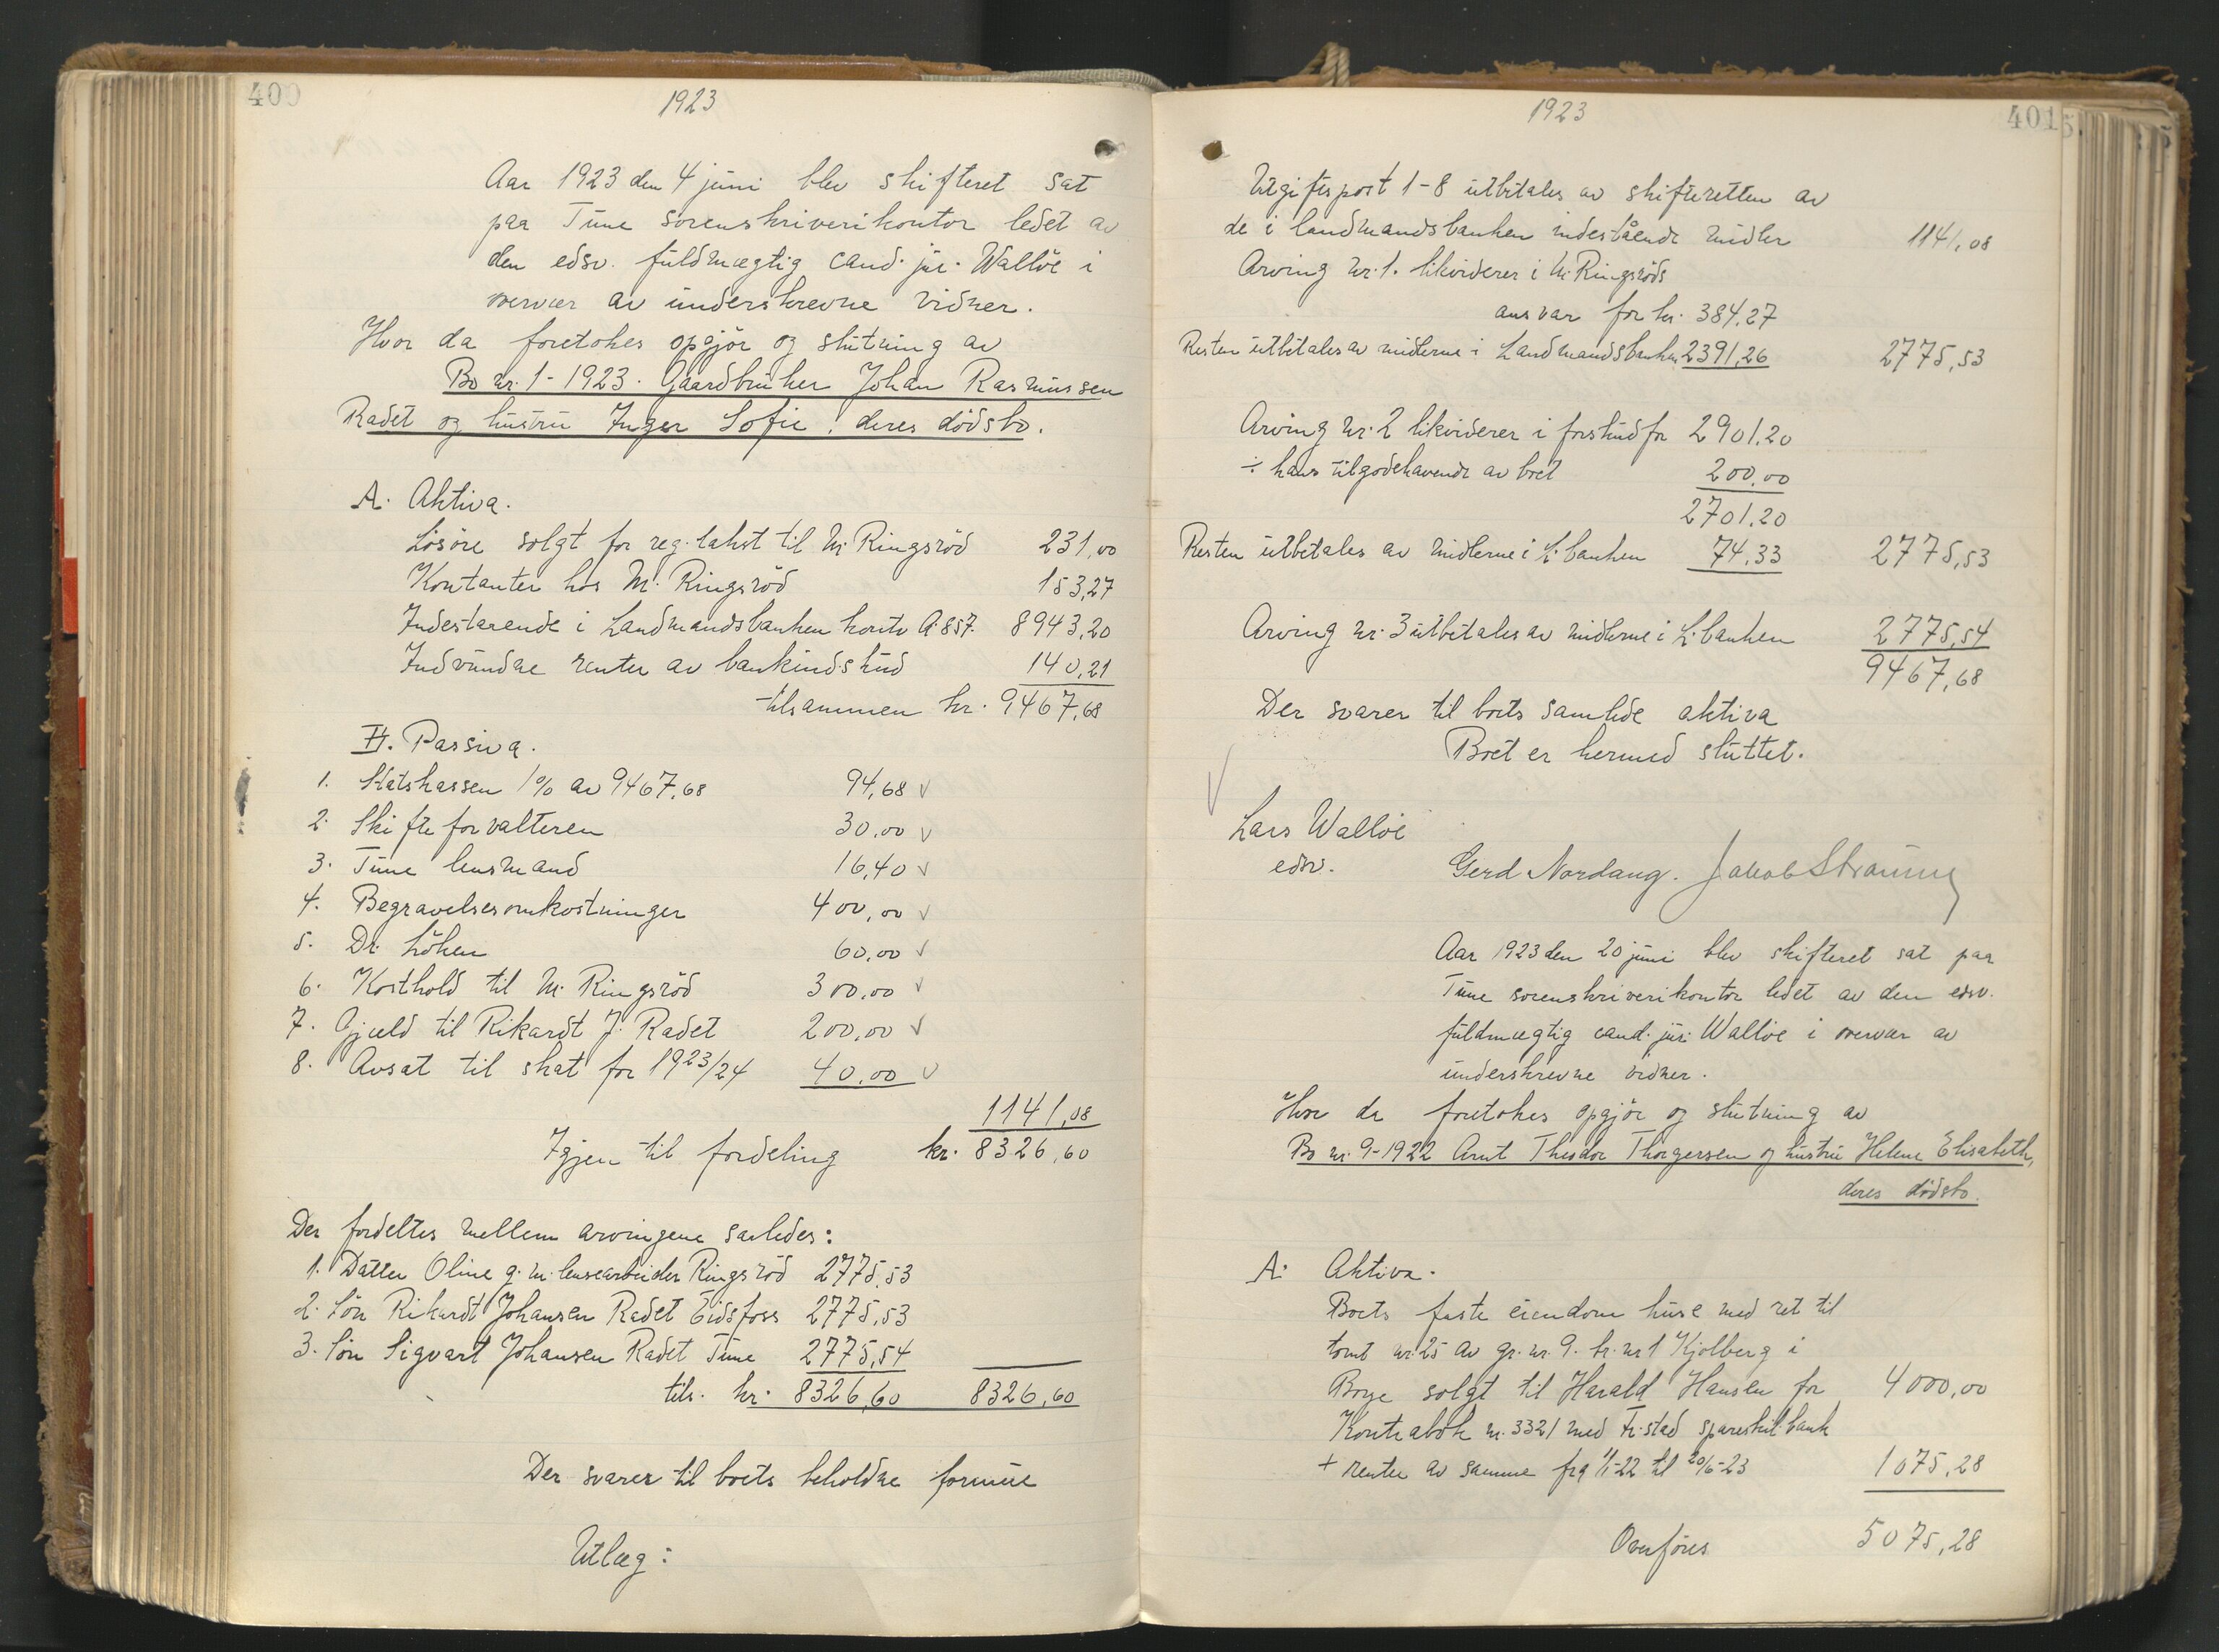 400
1923
Aar 1923 den 4 juni blev skifteret sat
paa Tune sorenskriverikontor ledet av
den edsv. fuldmægtig cand. jur. Walløe i
overvær av underskrevne vidner.
Hvor da foretokes opgjör og slutning av
Bo nr. 1-1923. Gaardbruker Johan Rasmussen
Radet og hustru Inger Sofie: deres dödsbo.
A. Aktiva.
Lösöre solgt for reg. takst til M. Ringsröd 231,00
Kontanter hos M. Ringsröd 153,27
Indestaaende i Landmandsbanken konto A. 857. 8943,20
Indvundne renter av bankindskud 140,21
tilsammen kr. 9467,68
II. Passiva.
1. Statskassen 1% av 9467,68 94,68 v
2. Skifteforvalteren 30,00 v
3. Tune lensmand 16,40 v
4. Begravelsesomkostninger 400,00 v
5. Dr. Löken 60,00 v
6. Kosthold til M. Ringsröd 300,00 v
7. Gjæld til Rikardt J. Radet 200,00 v
8. Avsat til skat for 1923/24 40,00 v
1141,08
Igjen til fordeling kr. 8326,60
Der fordeltes mellem arvingene saaledes:
1. Datter Oline g. m. lensearbeider Ringsröd 2775,53
2. Sön Rikardt Johansen Radet Eidsfoss 2775,53
3. Sön Sigvart Johansen Radet Tune 2775,54
tils. kr. 8326,60 8326,60
Der svarer til boets beholdne formue
Utlæg:
401
1923
Utgiftspost 1-8 utbetales av skifteretten av
de i landmandsbanken indestående midler 1141,08
Arving nr. 1. likviderer i M. Ringsröds
ansvar for kr. 384,27
Resten utbetales av midlerne i Landmandsbanken 2391,26 2775,53
Arving nr. 2 likviderer i forskud for 2901,20
÷ hans tilgodehavende av boet 200,00
2701,20
Resten utbetales av midlerne i L. banken 74,33 2775,53
Arving nr. 3 utbetales av midlerne i L. banken 2775,54
9467,68
Der svarer til boets samlede aktiva
Boet er hermed sluttet.
Lars Walløe
edsv.
Gerd Nordang. Jakob
Aar 1923 den 20 juni blev skifteret sat paa
Tune sorenskriverikontor ledet av den edsv.
fuldmægtig cand. jur. Walløe i overvær av
underskrevne vidner.
Hvor da foretokes opgjör og slutning av
Bo nr. 9-1922 Arnt Theodor Thorgersen og hustru Helene Elisabeth,
deres dödsbo.
A. Aktiva.
Boets faste eiendom huse med ret til
tomt nr. 25 av gr. nr. 9. br. nr 1 Kjölberg i
Borge solgt til Harald Hansen for 4000,00
Kontrabok nr. 3321 med Fr.stad spareskil. bank
+ renter av samme fra 1/1-22 til 20/6-23 1075,28
Overföres 5075,28